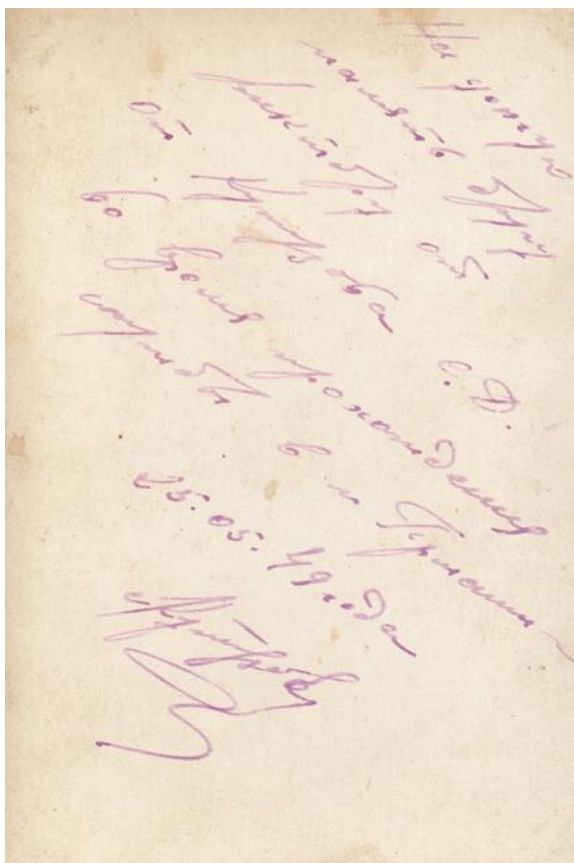 На долгую
память другу
Виктору от
от Кутузова С. Д.
во время прохождения
службы в Германии
25.05.49 года
Кутузов